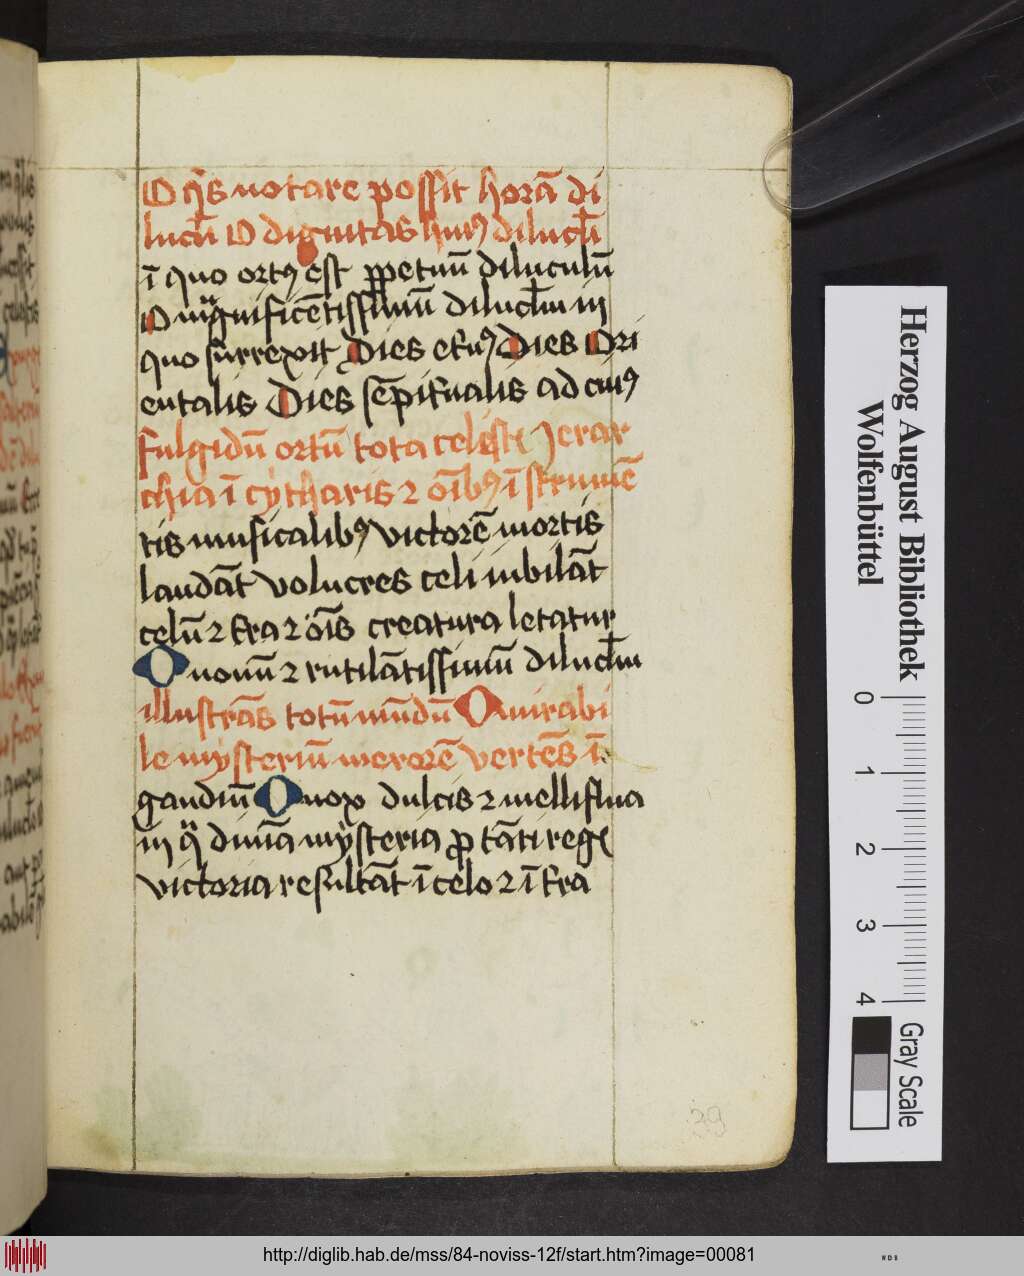 O q̇s notare possit horā di
lucl̄i O dignitas huiꝰ dilucl̄i
ī quo ortꝰ est ꝑpetuū diluculū
O mͣgnificētissimū dilucl̄m in
quo surrexit Dies etnꝰ Dies Ori
entalis Dies sēpitnalis ad cuiꝰ
fulgidū ortū tota celesti Jerar
chia ī cytharis ⁊ oībꝰ ī strumē
tis musicalibꝰ victorē mortis
laudāt volucres celi iubilāt
celū ⁊ tra ⁊ oīs creatura letatur
O nouū ⁊ rutilātissimū dilucl̄m
illustrās totū mūdū O mirabi
le mysteriū merorē vertēs ī
gaudiū O nox dulcis ⁊ melliflua
in qͣ diuīa mysteria ꝓ tāti regͥ
victoria resultāt ī celo ⁊ ī tra
39
Herzog August Bibliothek
Wolfenbüttel
0 1 2 3 4
Gray Scale
http://diglib.hab.de/mss/84-noviss-12f/start.htm?image=00081